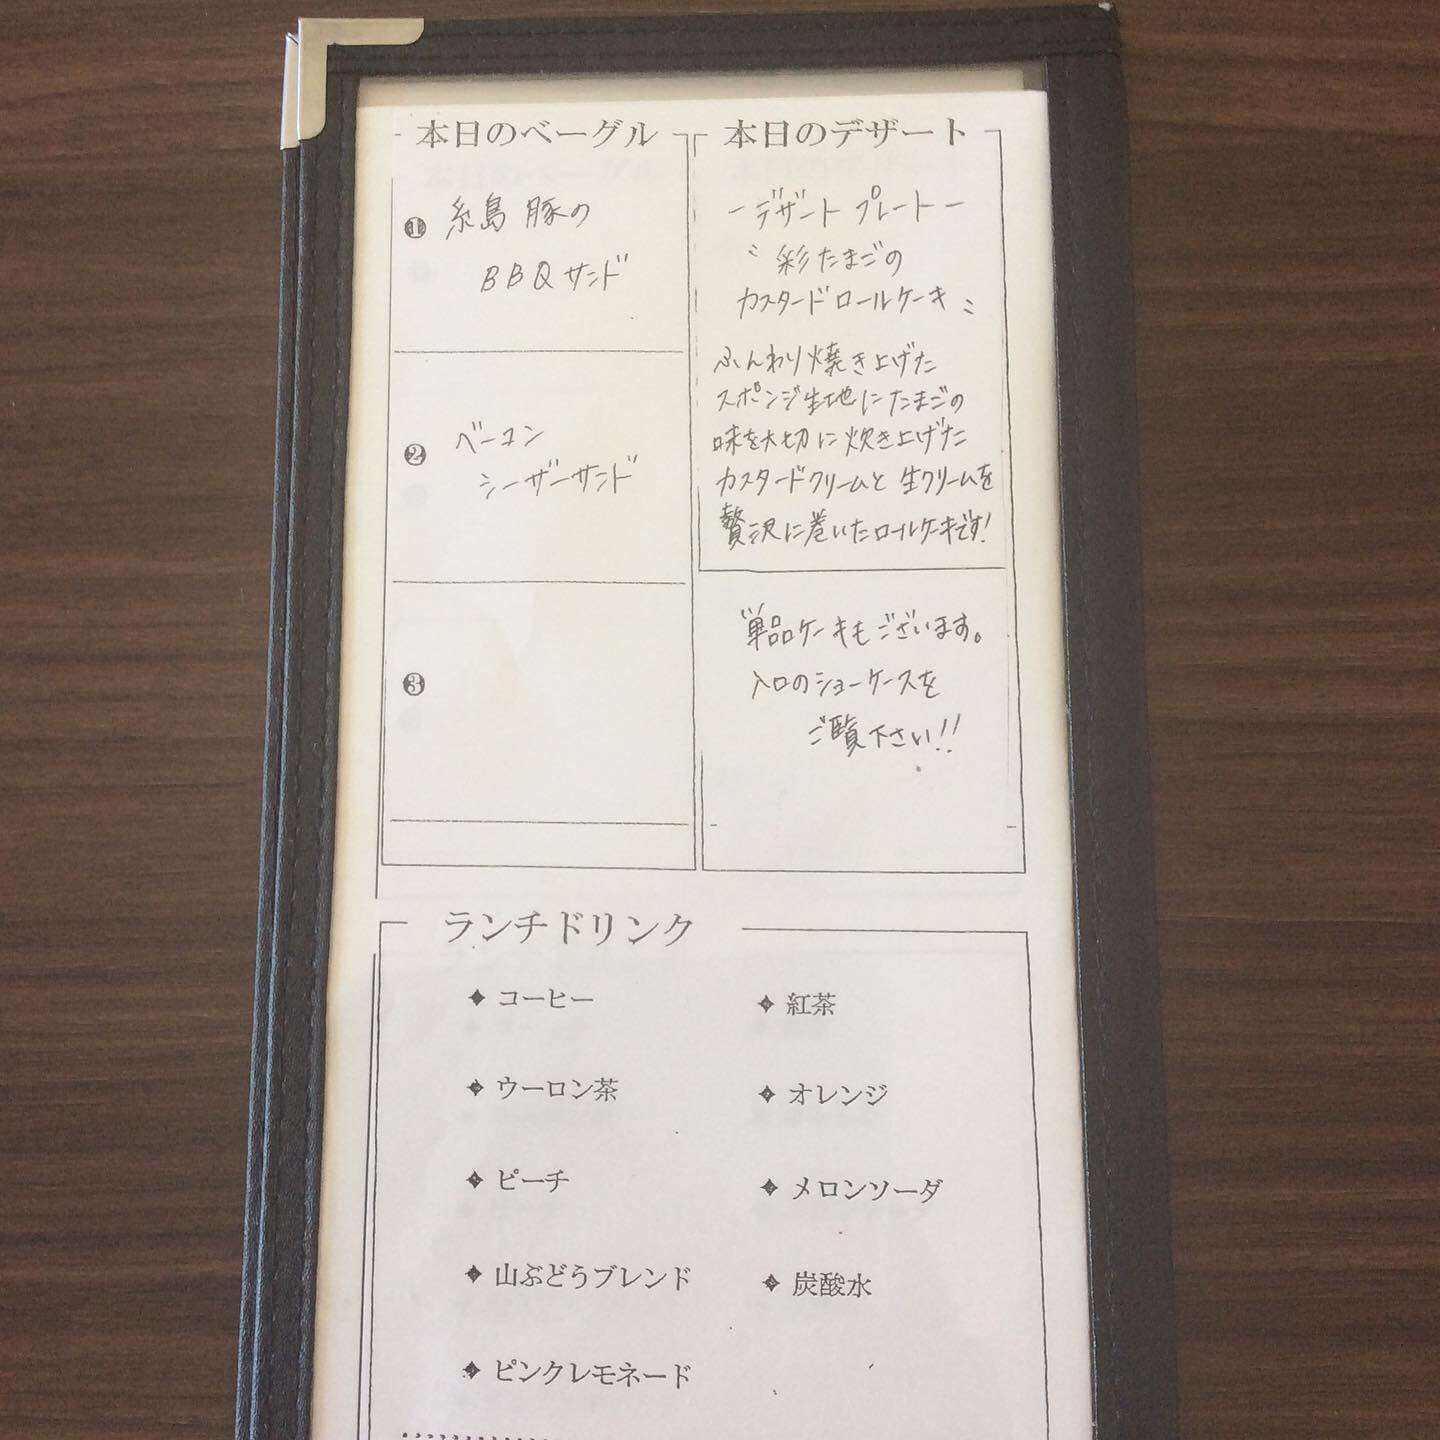 本日のベーグル
❶ 糸島豚の
BBQサンド
❷ ベーコン
シーザーサンド
❸
本日のデザート
ーデザートプレートー
〝彩たまごの
カスタードロールケーキ〟
ふんわり焼き上げた
スポンジ生地にたまごの
味を大切に炊き上げた
カスタードクリームと生クリームを
贅沢に巻いたロールケーキです!
単品ケーキもございます。
入口のショーケースを
ご覧下さい!!
ランチドリンク
コーヒー
紅茶
ウーロン茶
オレンジ
ピーチ
メロンソーダ
山ぶどうブレンド
炭酸水
ピンクレモネード